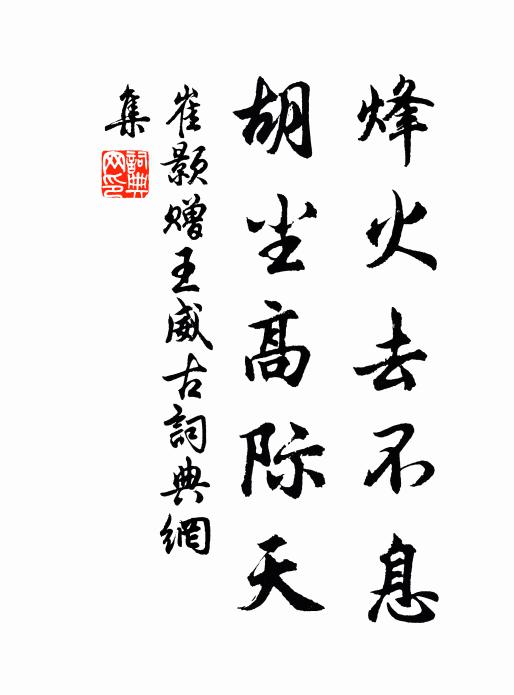 烽火去不息
胡尘高际天
崔颢赠王威古詞典網
集
詞典网印